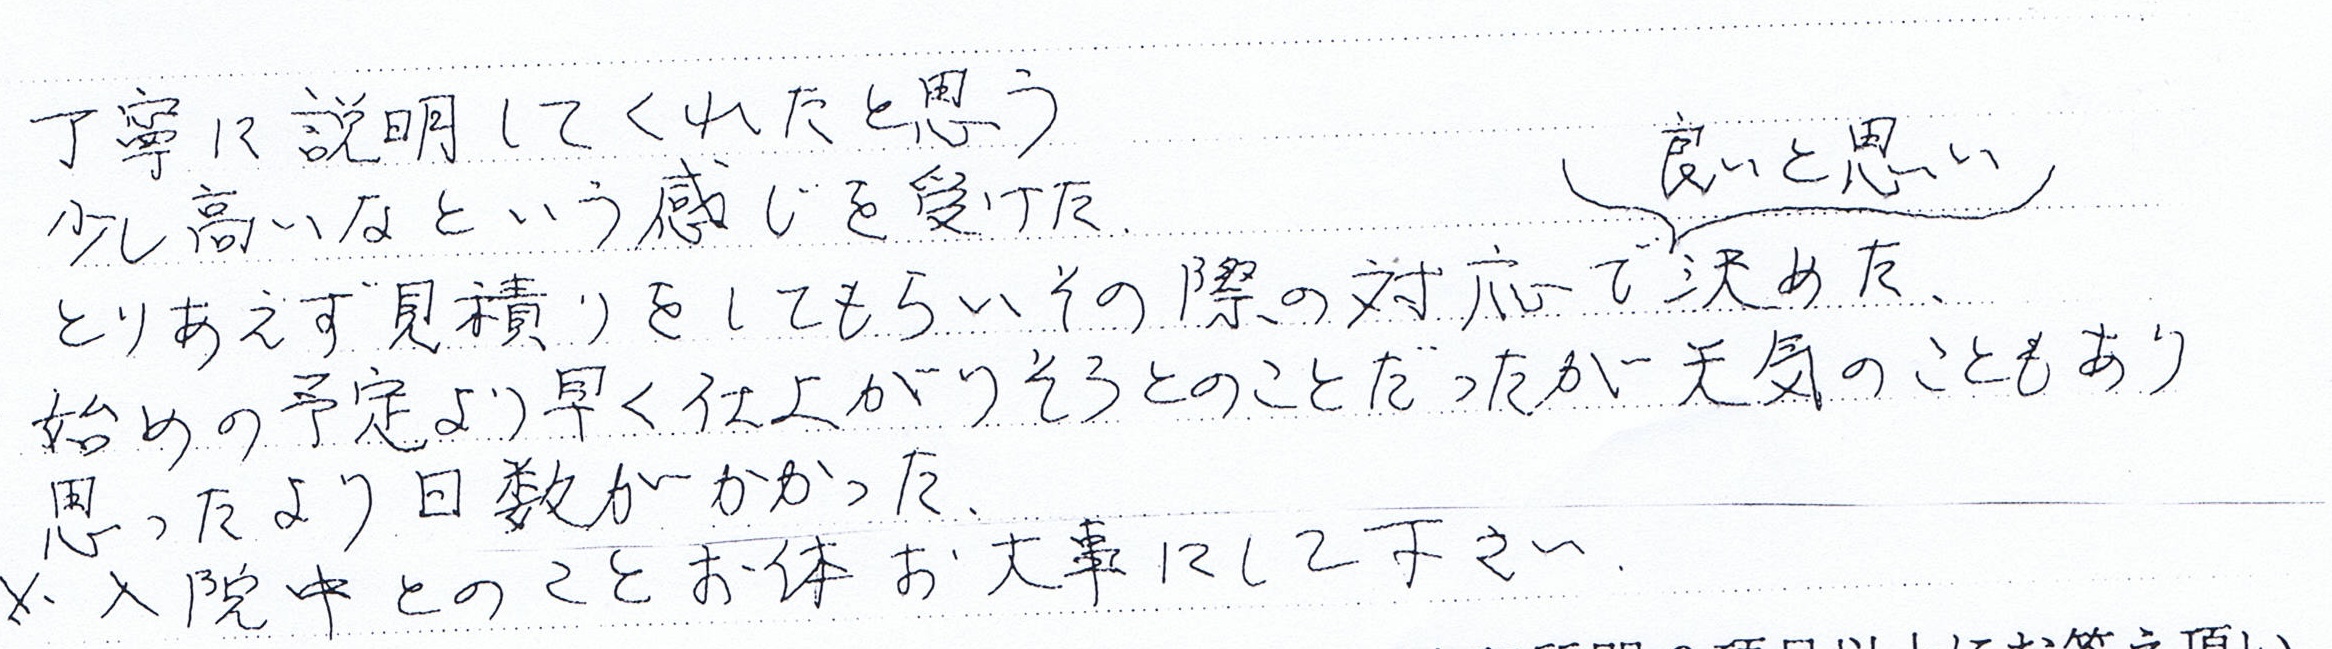 丁寧に説明してくれたと思う
少し高いなという感じを受けた.
良いと思い
とりあえず見積りをしてもらいその際の対応で決めた、
始めの予定より早く仕上がりそうとのことだったが天気のこともあり
思ったより日数がかかった、
※入院中とのことお体お大事にして下さい.